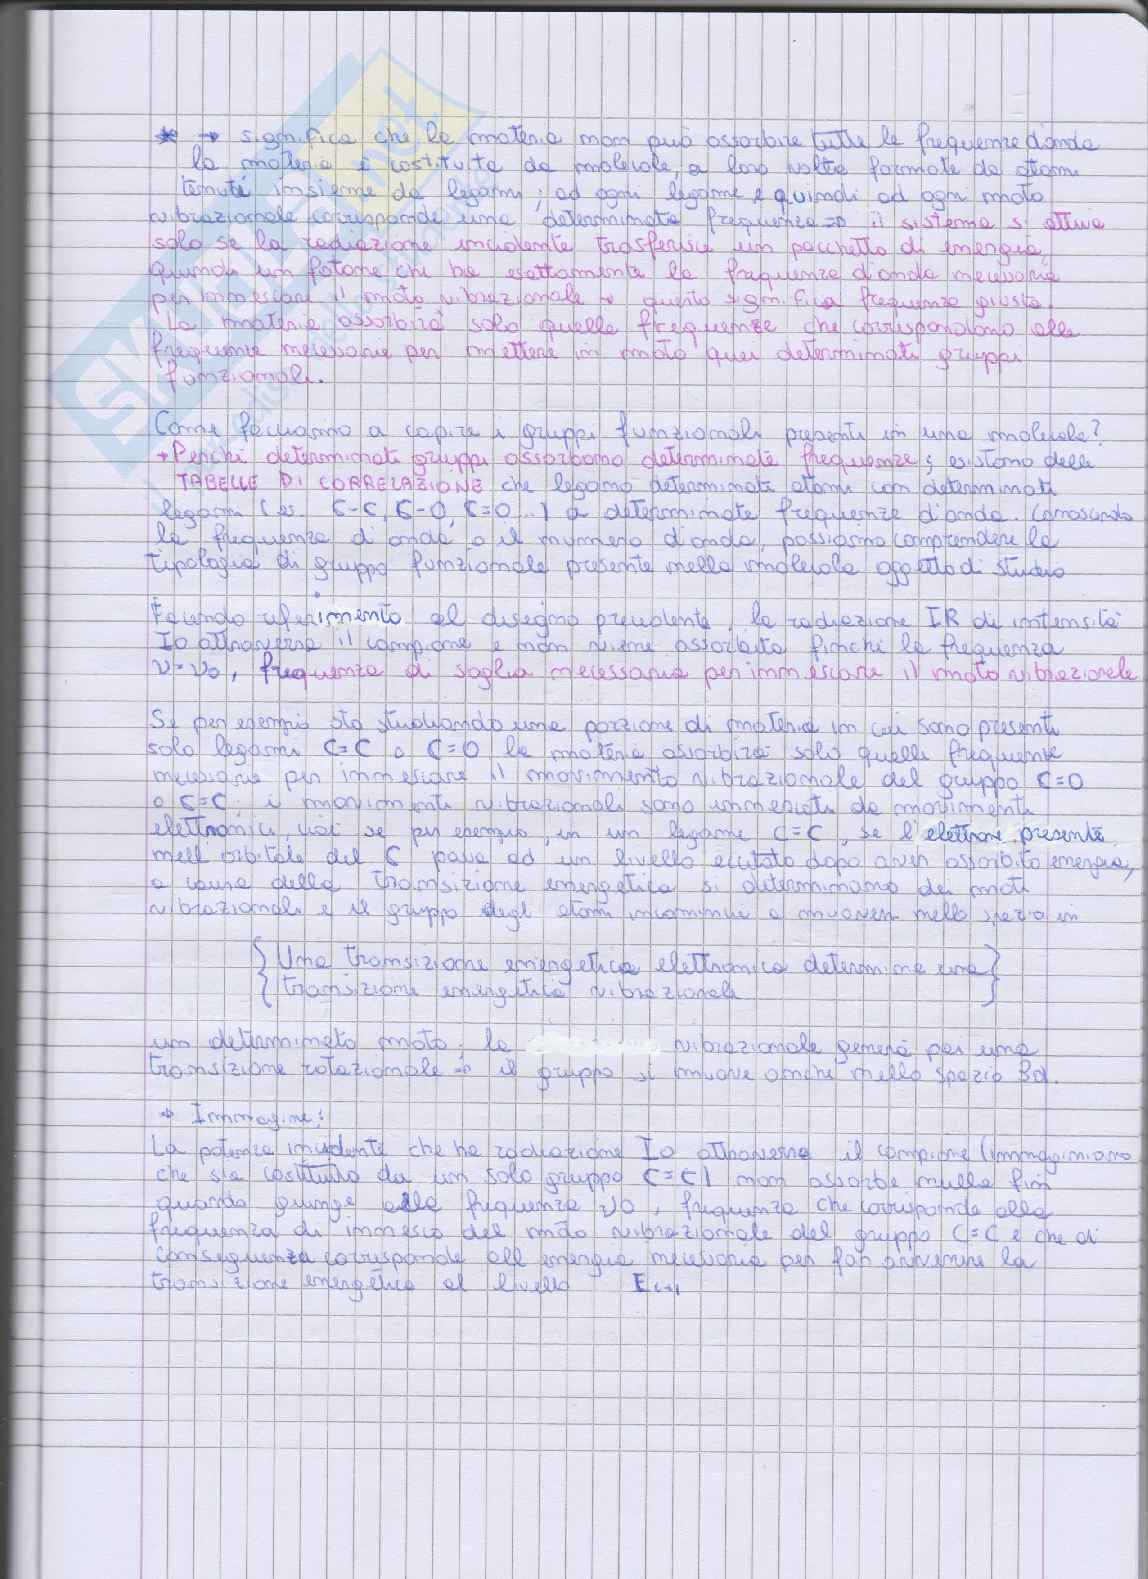 * → significa che la materia non può assorbire tutte le frequenze d'onda
la materia è costituita da molecole, a loro volta formate da atomi
tenuti insieme da legami; ad ogni legame e quindi ad ogni moto
vibrazionale corrisponde una determinata frequenza → il sistema si attiva
solo se la radiazione incidente trasferisce un pacchetto di energia,
quindi un fotone che ha esattamente la frequenza d'onda necessaria
per innescare il moto vibrazionale → questo significa frequenza giusta.
La materia assorbirà solo quelle frequenze che corrispondono alle
frequenze necessarie per mettere in moto quei determinati gruppi
funzionali.
Come facciamo a capire i gruppi funzionali presenti in una molecola?
→ Perché determinati gruppi assorbono determinate frequenze; esistono delle
TABELLE DI CORRELAZIONE che legano determinati atomi con determinati
legami (es. C-C, C-O, C=O..) a determinate frequenze d'onda. Conoscendo
la frequenza d'onda o il numero d'onda, possiamo comprendere la
tipologia di gruppo funzionale presente nella molecola oggetto di studio
Facendo riferimento al disegno precedente, la radiazione IR di intensità
Io attraversa il campione e non viene assorbita finché la frequenza
ν=ν0, frequenza di soglia necessaria per innescare il moto vibrazionale
Se per esempio sto studiando una porzione di materia in cui sono presenti
solo legami C=C o C=O la materia assorbirà solo quelle frequenze
necessarie per innescare il movimento vibrazionale del gruppo C=O
o C=C; i movimenti vibrazionali sono innescati da movimenti
elettronici, cioè se per esempio, in un legame C=C, se l'elettrone presente
nell'orbitale del C passa ad un livello eccitato dopo aver assorbito energia,
a causa della transizione energetica si determinano dei moti
vibrazionali e il gruppo degli atomi incomincia a muoversi nello spazio in
{Una transizione energetica elettronica determina una}
{transizione energetica vibrazionale}
un determinato moto; la vibrazionale genera poi una
transizione rotazionale → il gruppo si muove anche nello spazio 3d.
→ Immagine:
La potenza incidente che ha radiazione Io attraversa il campione (immaginiamo
che sia costituito da un solo gruppo C=C) non assorbe nulla fin
quando giunge alla frequenza ν0, frequenza che corrisponde alla
frequenza di innesco del moto vibrazionale del gruppo C=C e che di
conseguenza corrisponde all'energia necessaria per far avvenire la
transizione energetica al livello Ei+1